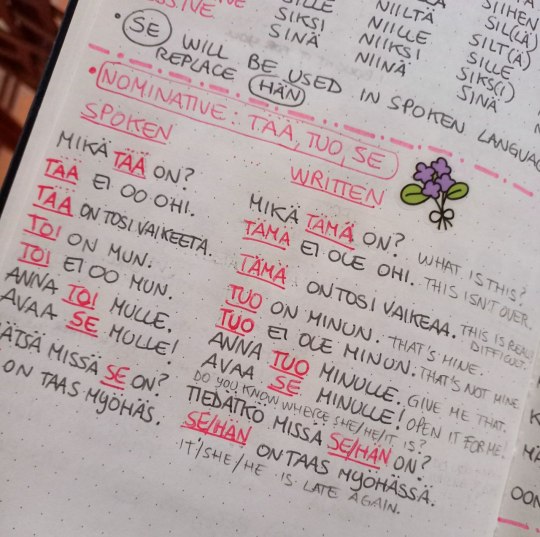 SIKSI
SINÄ
NIILTÄ
NIILLE
NIIKSI
NIINÄ
SIIHEN
SIL(LÄ)
SILT(Ä)
SILLE
SIKS(I)
SINÄ
• SE WILL BE USED IN SPOKEN
REPLACE HÄN
• NOMINATIVE: TÄÄ, TUO, SE
SPOKEN
MIKÄ TÄÄ ON?
TÄÄ EI OO OHI.
TÄÄ ON TOSI VAIKEETA.
TOI ON MUN.
TOI EI OO MUN.
ANNA TOI MULLE.
AVAA SE MULLE!
ÄTSÄ MISSÄ SE ON?
ON TAAS MYÖHÄS.
WRITTEN
MIKÄ TÄMÄ ON? WHAT IS THIS?
TÄMÄ EI OLE OHI. THIS ISN'T OVER.
TÄMÄ ON TOSI VAIKEAA. THIS IS REALLY
DIFFICULT.
TUO ON MINUN. THAT'S MINE.
TUO EI OLE MINUN. THAT'S NOT MINE
ANNA TUO MINULLE. GIVE ME THAT.
AVAA SE MINULLE! OPEN IT FOR ME!
DO YOU KNOW WHERE SHE/HE/IT IS?
TIEDÄTKÖ MISSÄ SE/HÄN ON?
SE/HÄN ON TAAS MYÖHÄSSÄ.
IT/SHE/HE IS LATE AGAIN.